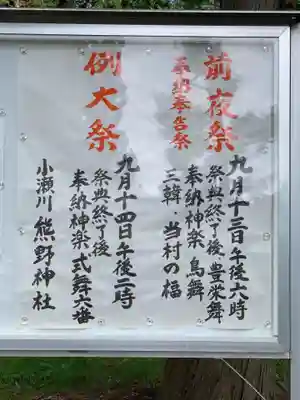 前夜祭
奉納奉告祭
九月十三日午後六時
祭典終了後 豊栄舞
奉納神楽 鳥舞
三韓・当村の福
例大祭
九月十四日午後二時
祭典終了後
奉納神楽 式舞六番
小瀬川 熊野神社